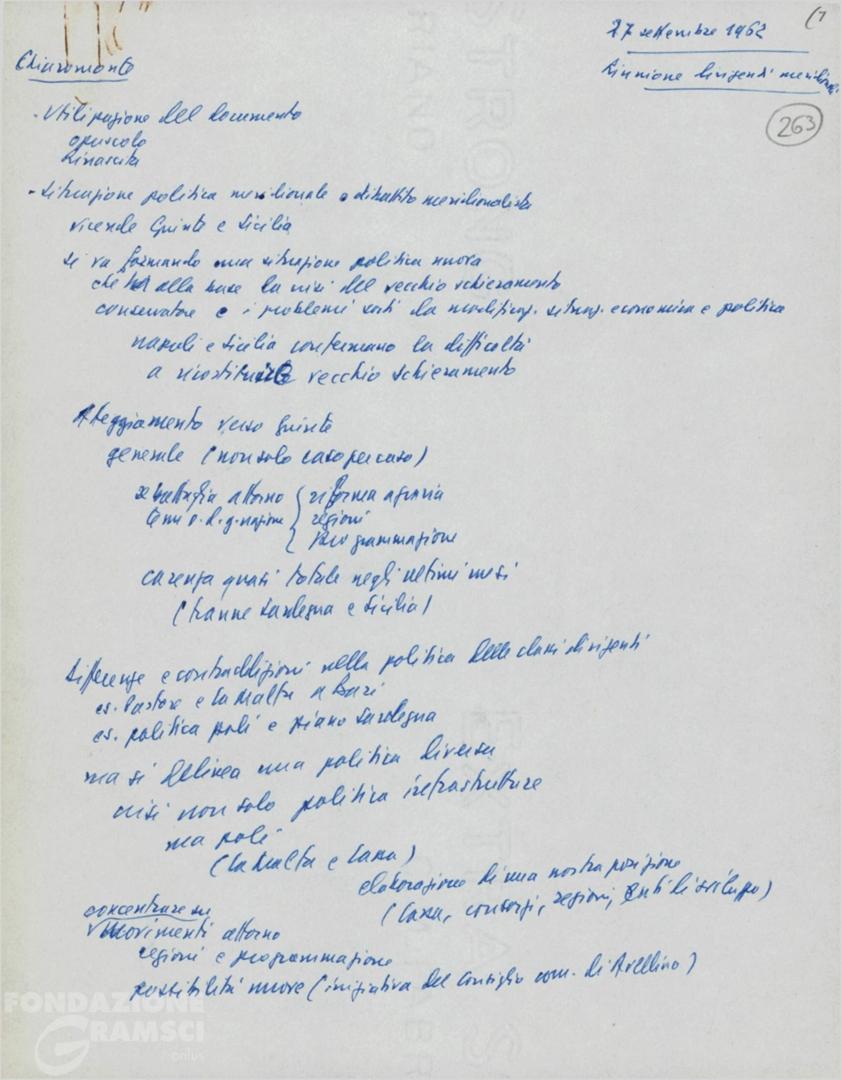 (1
27 settembre 1962
Riunione dirigenti meridionali
263
Chiaromonte
- Utilizzazione del documento
opuscolo
Rinascita
- Situazione politica meridionale e dibattito meridionalista
vicende Giunte e Sicilia
si va formando una situazione politica nuova
che alla base la crisi del vecchio schieramento
conservatore e i problemi sorti da modificaz. situaz. economica e politica
napoli e Sicilia confermano la difficoltà
a ricostituire vecchio schieramento
Atteggiamento verso giunte
generale (non solo caso per caso)
se battaglia attorno { riforma agraria
temi o.d.g. nazione { regioni
programmazione
carenza quasi totale negli ultimi mesi
(tranne Sardegna e Sicilia)
Differenze e contraddizioni nella politica delle classi dirigenti
es. Pastore e La Malfa a Bari
es. politica poli e piano Sardegna
ma si delinea una politica diversa
crisi non solo politica infrastrutture
ma poli
(La Malfa e Cassa)
elaborazione di una nostra posizione
(Cassa, consorzi, regioni, Enti di sviluppo)
concentrare su
movimenti attorno
regioni e programmazione
possibilità nuove (iniziativa del Consiglio com. di Avellino)
FONDAZIONE
GRAMSCI
onlus